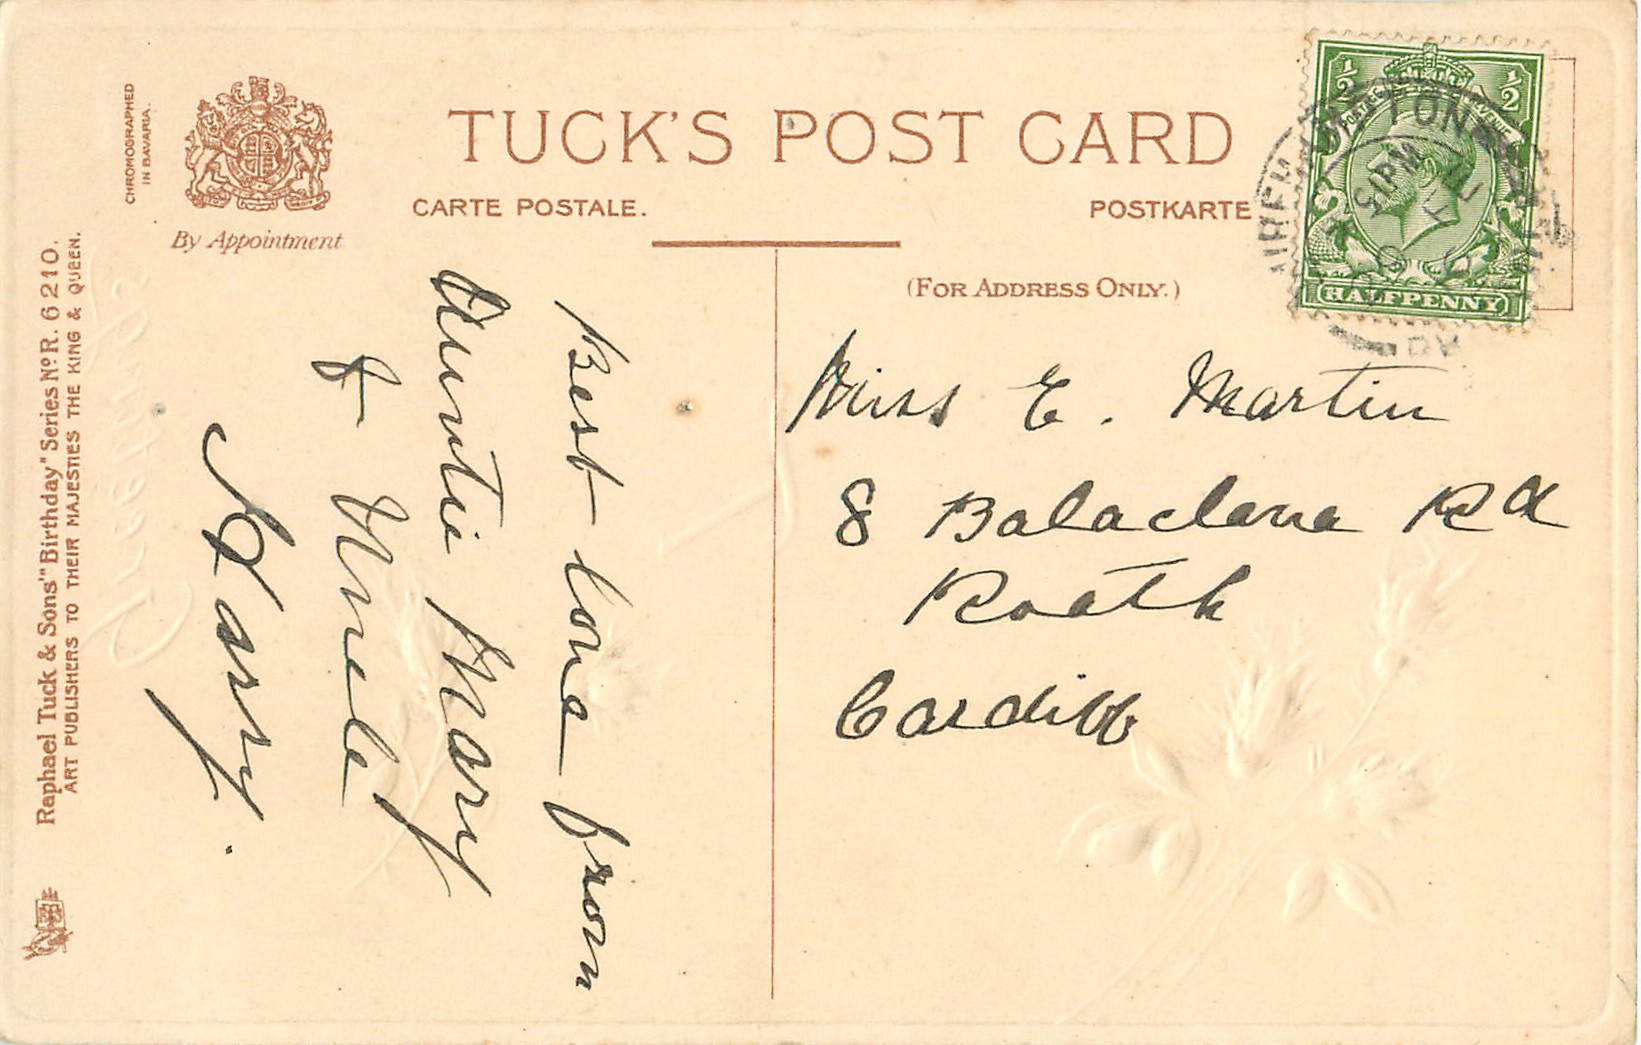 TUCK'S POST CARD
CARTE POSTALE.
POSTKARTE
(FOR ADDRESS ONLY.)
CHROMOGRAPHED
IN BAVARIA.
By Appointment
Raphael Tuck & Sons' "Birthday" Series No R. 6210.
ART PUBLISHERS TO THEIR MAJESTIES THE KING & QUEEN.
Best love from
Auntie Mary
& Uncle
Harry.
Miss E. Martin
8 Balaclava Rd
Roath
Cardiff
½ ½
POSTAGE REVENUE
HALFPENNY
Greetings